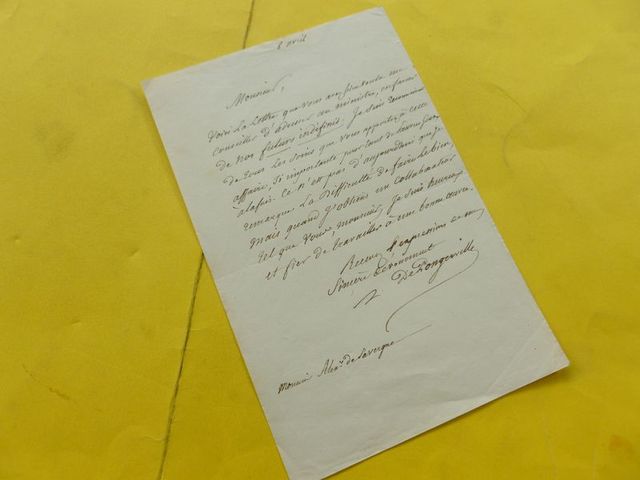 8 avril
Monsieur,
Voici la lettre que vous avez bien voulu me
conseiller d'adresser au ministre, en faveur
de nos futurs indéfinis. Je suis
de tous les soins que vous apportez à cette
affaire, si importante pour tant de
à la fois. Ce n'est pas d'aujourd'hui que je
remarque la difficulté de faire le bien,
mais quand j'obtiens un collaborateur
tel que vous, monsieur, je suis heureux
et fier de travailler à une bonne œuvre.
Recevez l'expression de mon
sincère dévouement
De Pongerville
Monsieur Alexre de Lavergne